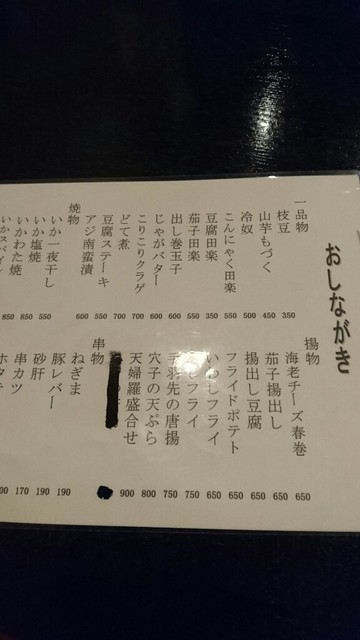 おしながき
一品物
枝豆 350
山芋もづく 450
冷奴 350
こんにゃく田楽 500
豆腐田楽 550
茄子田楽 550
出し巻玉子 600
じゃがバター 600
こりこりクラゲ 600
どて煮 700
豆腐ステーキ 700
アジ南蛮漬 600
焼物
いか一夜干し 550
いか塩焼 850
いかわた焼 850
揚物
海老チーズ春巻 650
茄子揚出し 650
揚出し豆腐 650
フライドポテト 650
いわしフライ 650
フライ 750
手羽先の唐揚 750
穴子の天ぷら 800
天婦羅盛合せ 900
串物
ねぎま 190
豚レバー 190
砂肝 170
串カツ